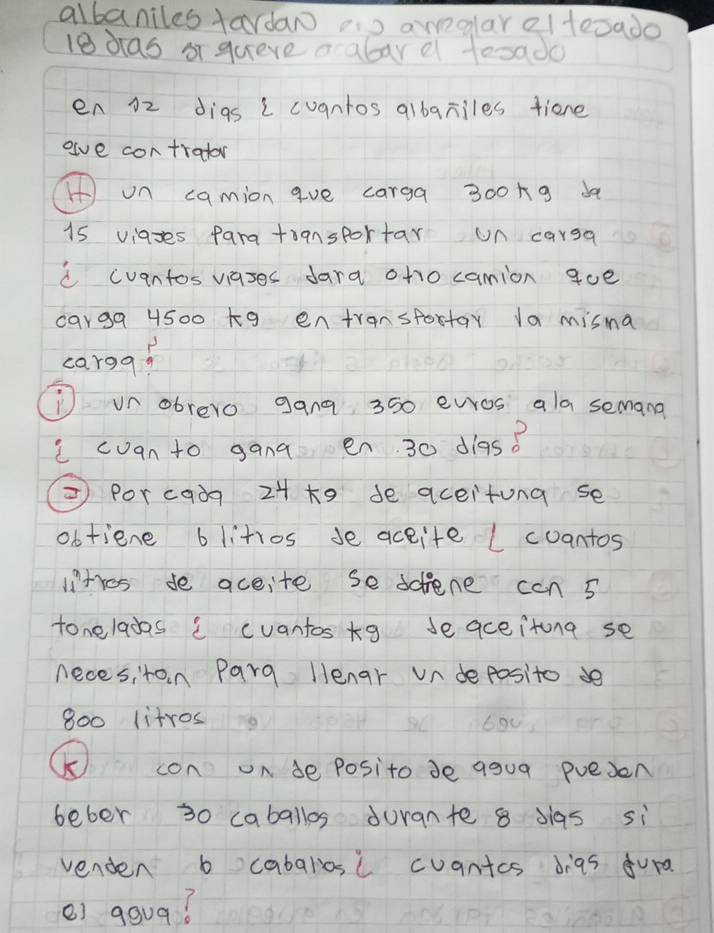 albaniles tardan en arreglar el tejado
18 dias si quiere acabar el tejado
en 12 dias ¿ cuantos albañiles tiene
que contratar
H un camion que carga 300 kg da
15 viajes para transportar un carga
¿ cuantos viajes dara otro camion que
carga 4500 kg en transportar la misma
carga?
i un obrero gana 350 euros ala semana
¿ cuanto gana en 30 dias?
J Por cada 24 kg de aceituna se
obtiene 6 litros de aceite ¿ cuantos
litros de aceite se obtiene con 5
toneladas ¿ cuantos kg de aceituna se
necesitan para llenar un deposito de
800 litros
K con un deposito de agua pueden
beber 30 caballos durante 8 dias si
venden 6 caballos ¿ cuantos dias dura
el agua?